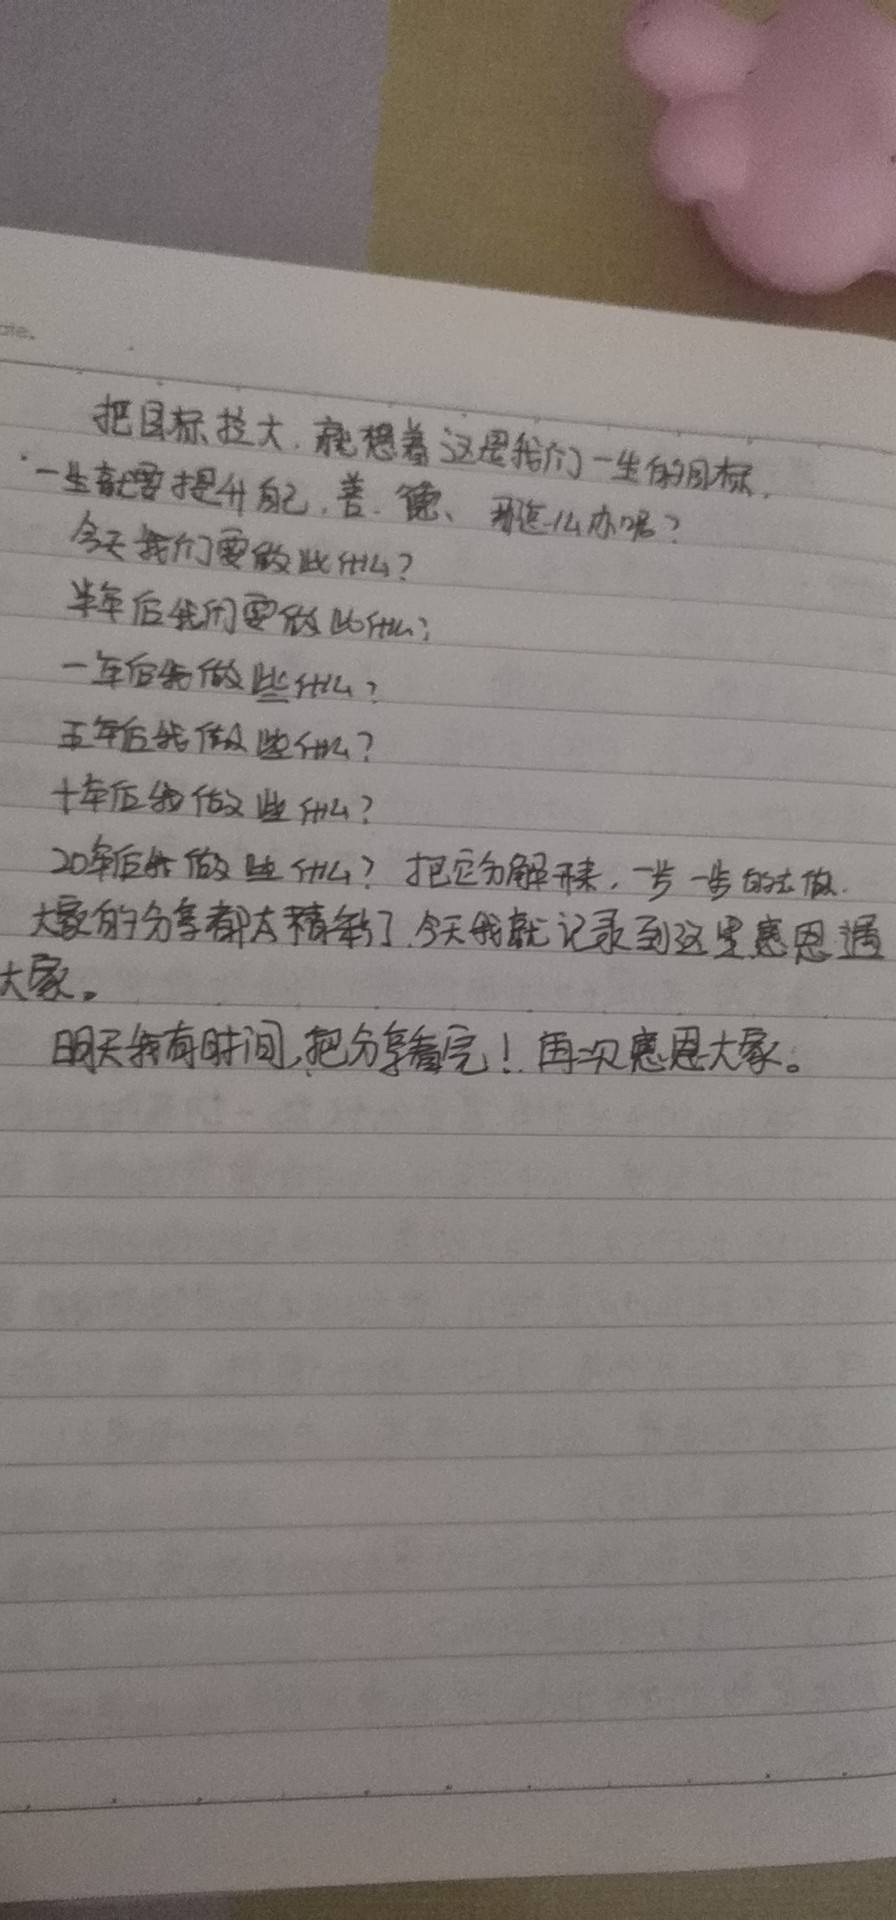 ate.
把目标拉大，就想着这是我们一生的目标，
一生就要提升自己，善、德、那怎么办呢？
今天我们要做些什么？
半年后我们要做些什么？
一年后我做些什么？
五年后我做些什么？
十年后我做些什么？
20年后我做些什么？把它分解开来，一步一步的去做．
大家的分享都太精彩了．今天我就记录到这里感恩遇
大家。
明天我有时间，把分享看完！再次感恩大家。